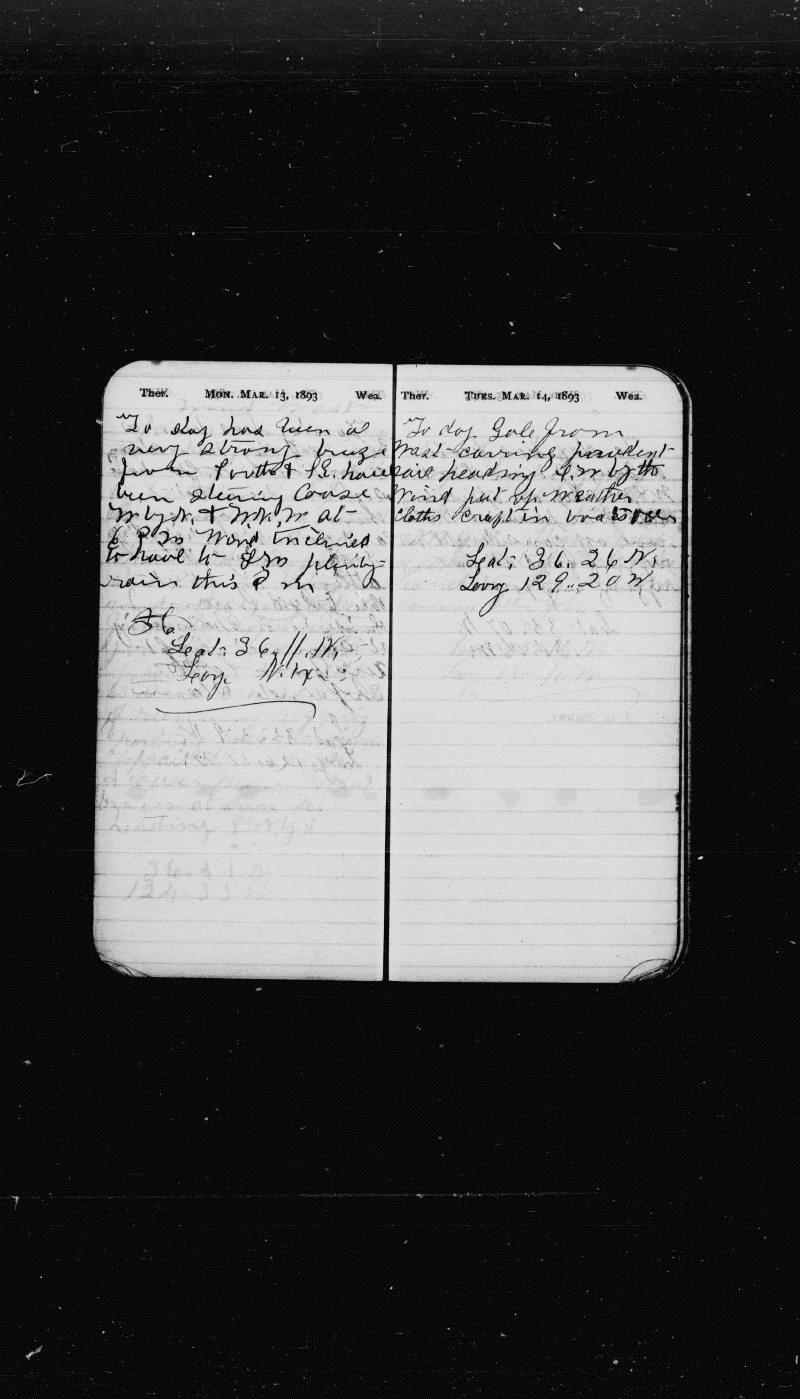 Ther. MON. MAR. 13, 1893 Wea.
To day has been a
very strong breze
from South & SE. have
been stearing Coarse
W by N. & W.N.W at
6 P m Wind inclined
to haul to plenty
rain this P m
36
Lat: 36.11.N.
Long.
Ther. TUES. MAR. 14, 1893 Wea.
To day Gale from
West carring
sail heading S.W by the
Wind put up Weather
cloths
Lat; 36.26 N.
Long 129..20 W